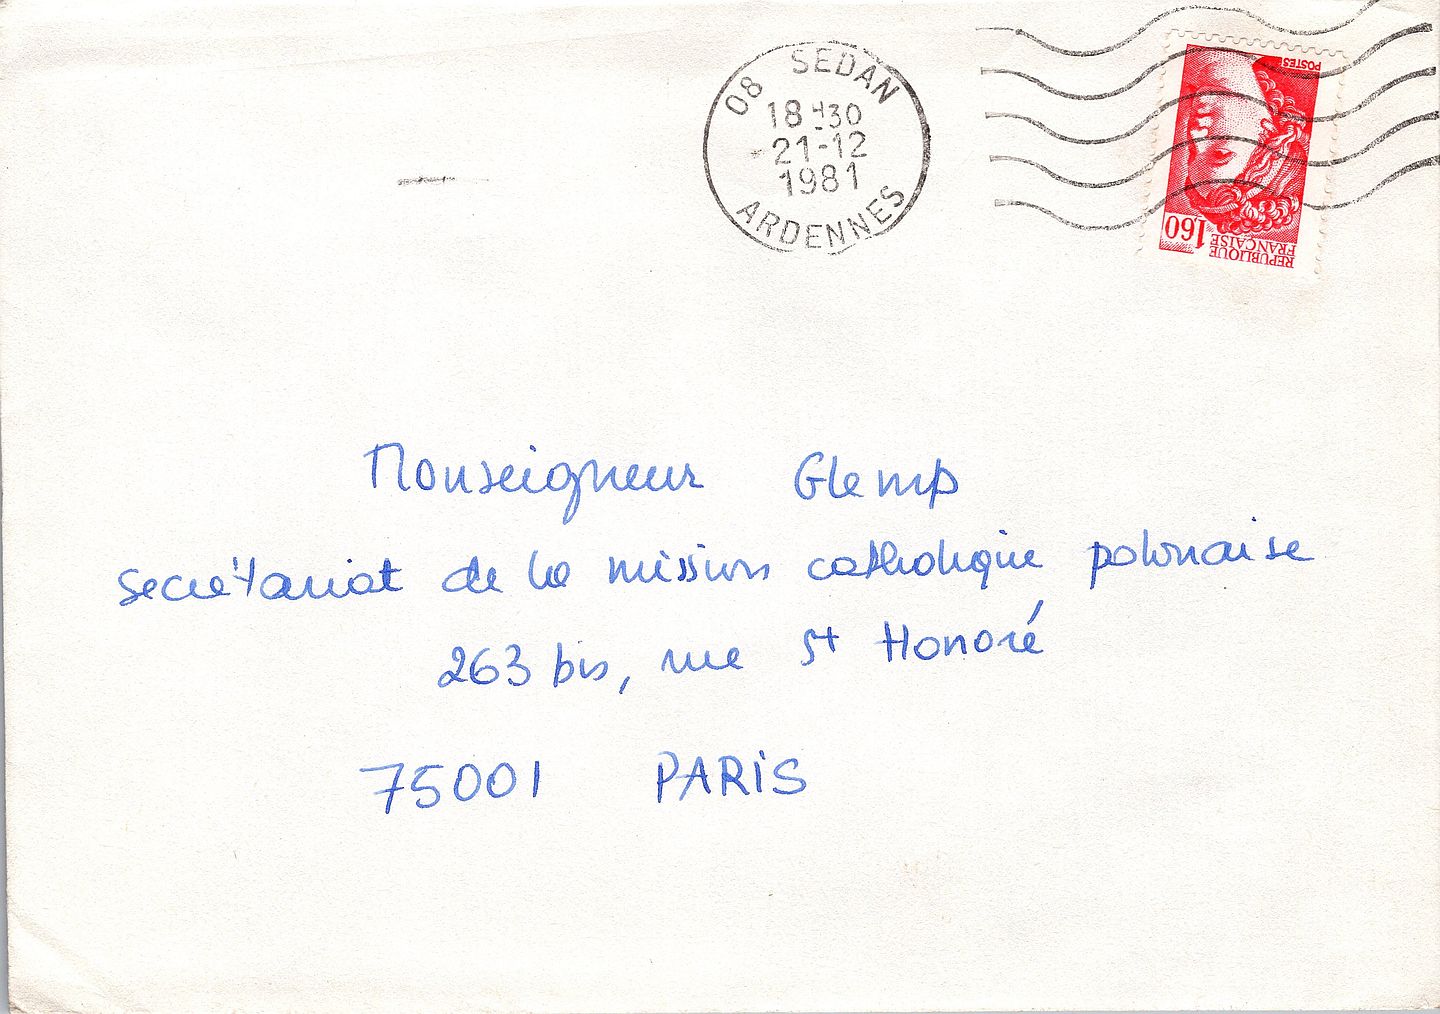 08 SEDAN
18H30
21-12
1981
ARDENNES
POSTES
1,60
REPUBLIQUE
FRANÇAISE
Monseigneur Glemp
secrétariat de la mission catholique polonaise
263 bis, rue St Honoré
75001 PARIS